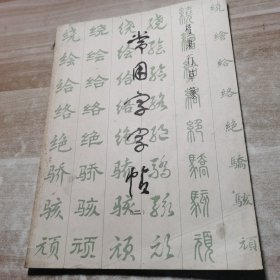 常用字字帖
二
绕绘给络绝骄骇顽
绕绘给络绝骄骇顽
绕绘给络绝骄骇顽
绕绘给络绝骄骇顽
绕绘给络绝骄骇顽